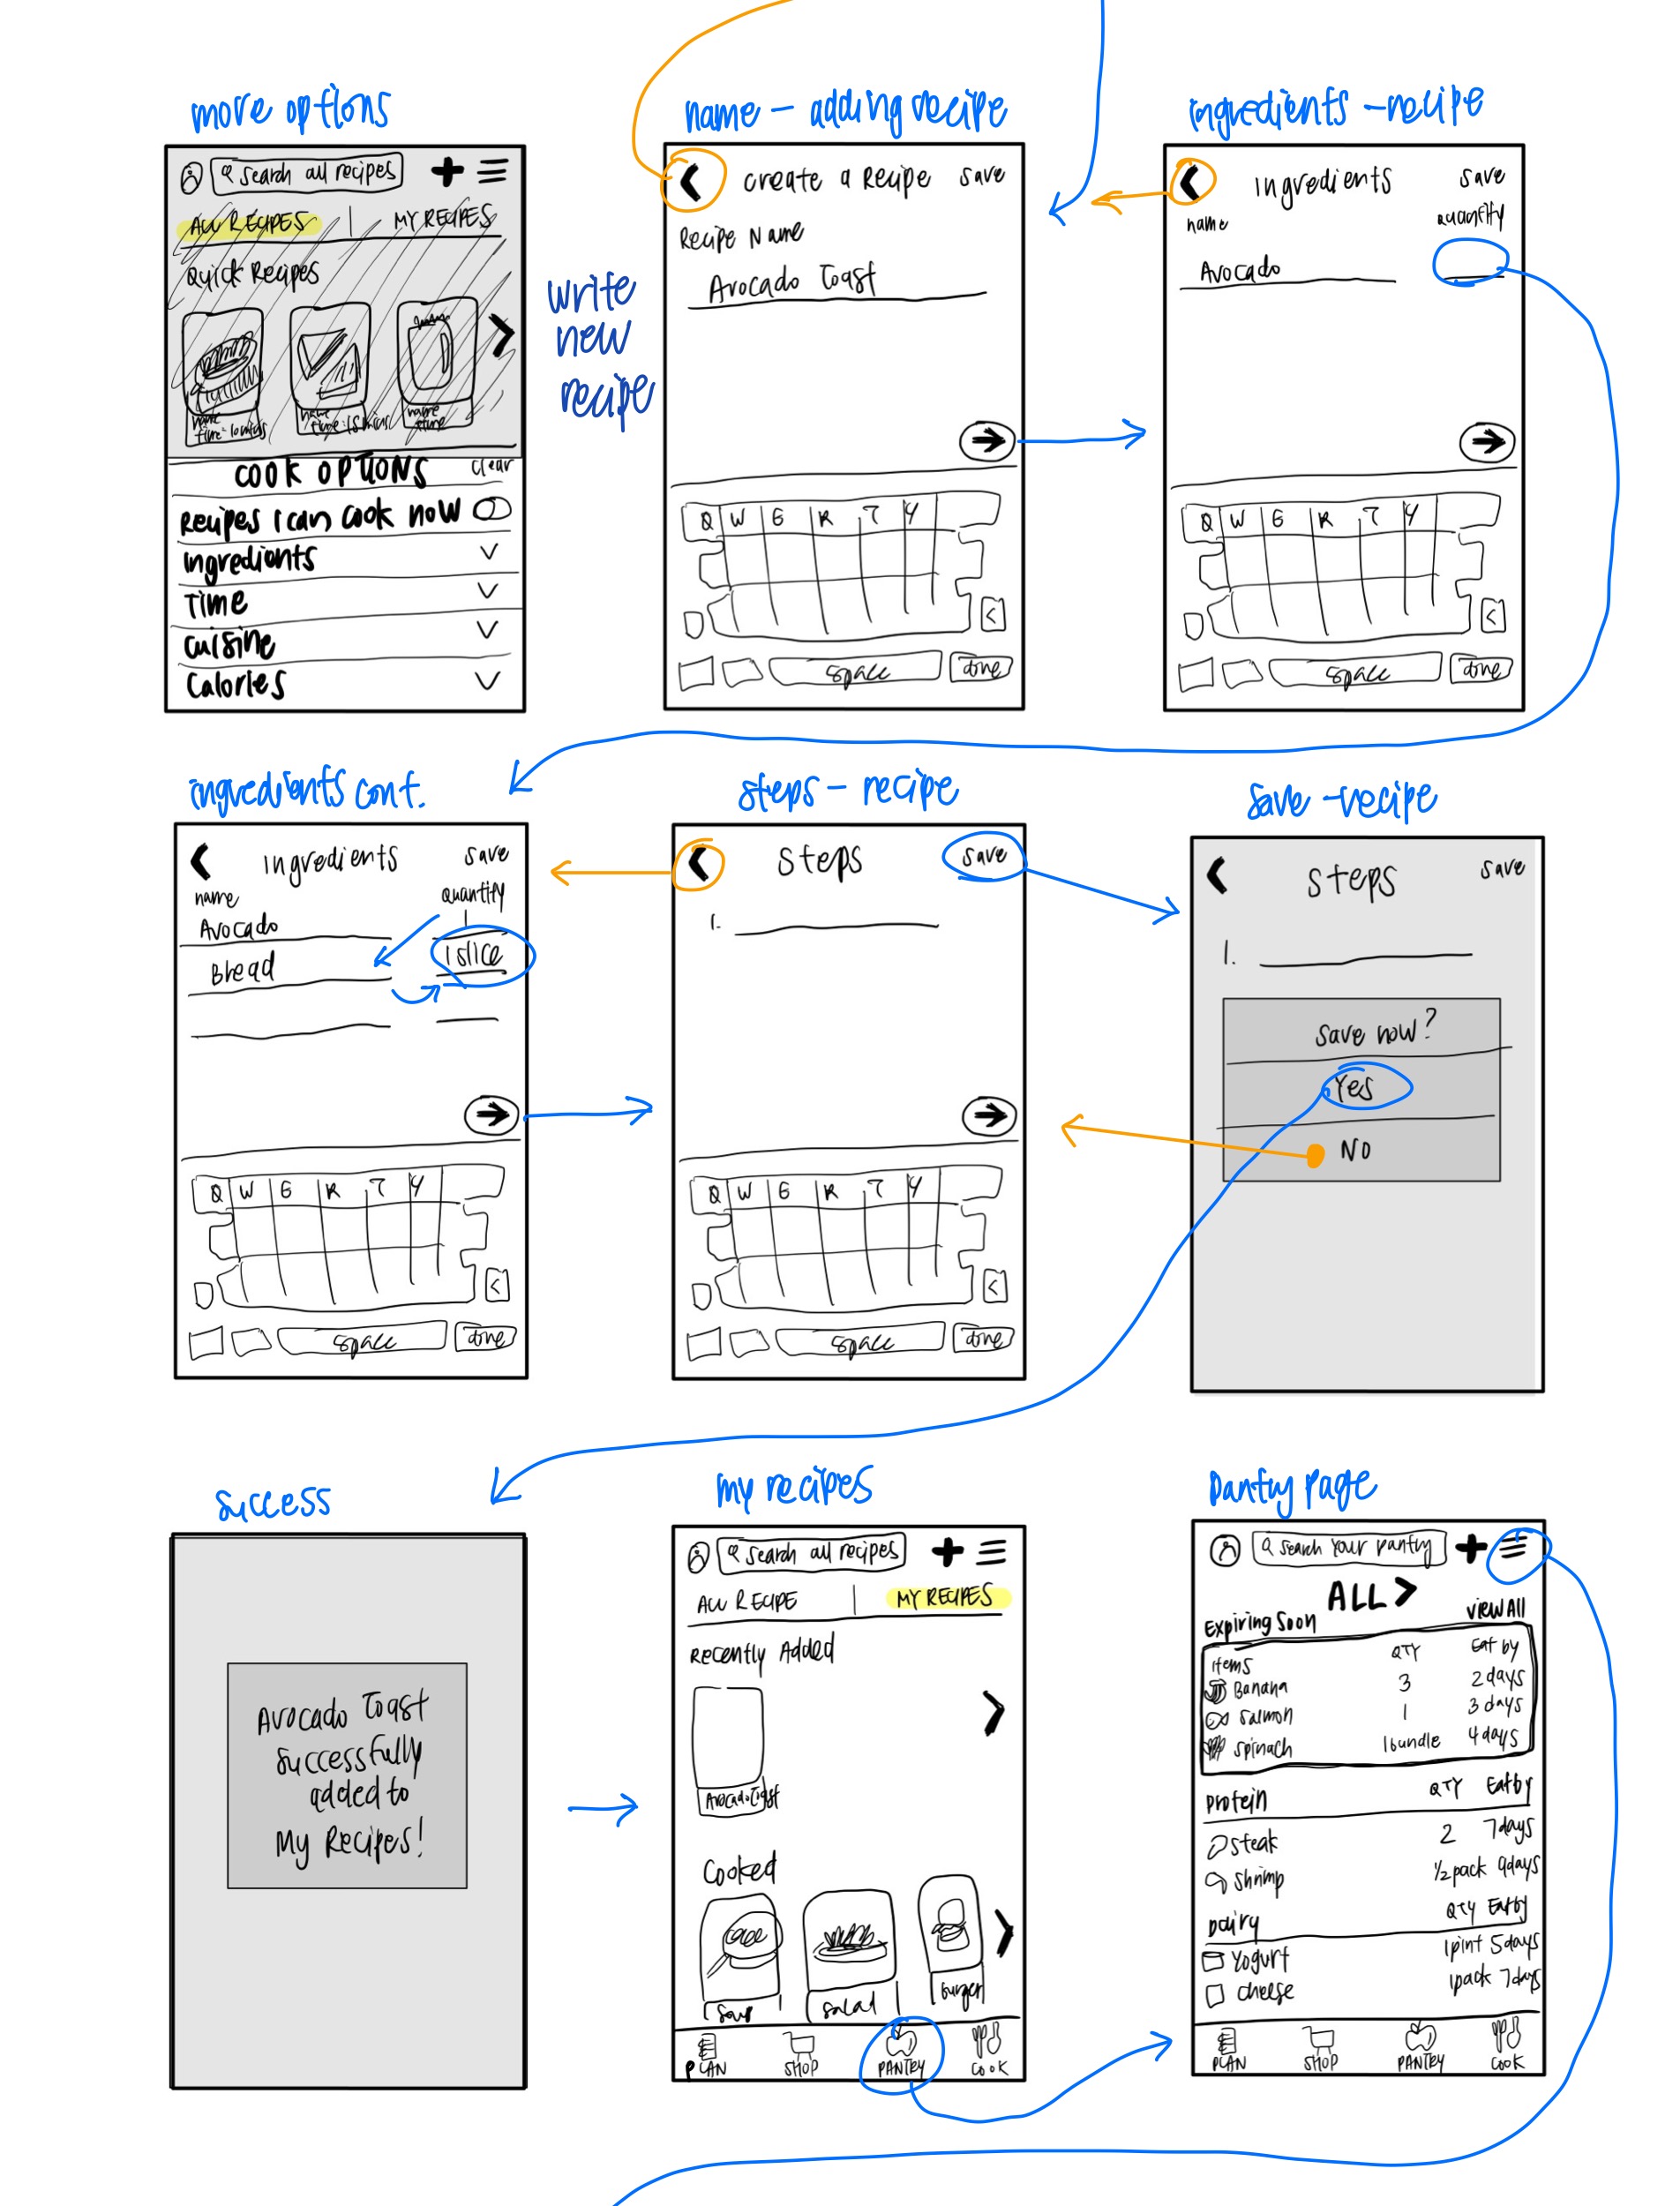 more options
Search all recipes
ALL RECIPES | MY RECIPES
Quick Recipes
name
time: 10 mins
name
time: 15 mins
name
time
COOK OPTIONS
clear
Recipes I can cook now
Ingredients
Time
Cuisine
Calories
write
new
recipe
name - adding recipe
Create a Recipe
Save
Recipe Name
Avocado Toast
Q W E R T Y
space
done
ingredients - recipe
Ingredients
Save
name
Quantity
Avocado
Q W E R T Y
space
done
ingredients cont.
Ingredients
Save
name
Quantity
Avocado
1
Bread
1 slice
Q W E R T Y
space
done
steps - recipe
Steps
Save
1.
Q W E R T Y
space
done
save - recipe
Steps
Save
1.
Save now?
Yes
NO
success
Avocado Toast
successfully
added to
My Recipes!
my recipes
Search all recipes
ALL RECIPE | MY RECIPES
Recently Added
Avocado Toast
Cooked
Soup
Salad
Burger
PLAN
SHOP
PANTRY
COOK
Pantry Page
Search Your Pantry
ALL
Expiring Soon
View All
Items QTY Eat by
Banana 3 2 days
Salmon 1 3 days
Spinach 1 bundle 4 days
Protein QTY Eat by
Steak 2 7 days
Shrimp 1/2 pack 9 days
Dairy QTY Eat by
Yogurt 1 pint 5 days
Cheese 1 pack 7 days
PLAN
SHOP
PANTRY
COOK